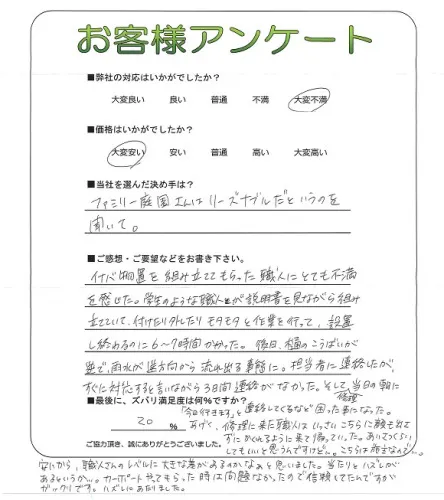 お客様アンケート
■弊社の対応はいかがでしたか？
大変良い 良い 普通 不満 大変不満
■価格はいかがでしたか？
大変安い 安い 普通 高い 大変高い
■当社を選んだ決め手は？
ファミリー庭園さんはリーズナブルだというのを
聞いて。
■ご感想・ご要望などをお書き下さい。
イナバ物置を組み立ててもらった職人にとても不満
を感じた。学生のような職人が説明書を見ながら組み
立てていて、付けたり外したりモタモタと作業を行って、設置
し終わるのに6〜7時間かかった。後日、樋のこうばいが
逆で、雨水が逆方向から流れ出る事態に。担当者に連絡したが、
すぐに対応すると言いながら3日間連絡がなかった。そして、当日の朝に
■最後に、ズバリ満足度は何％ですか？
「今日修理行きます」と連絡してくるなど困った事になった。
20 %
あげく、修理に来た職人はいっさいこちらに顔も出さ
ご協力頂き、誠にありがとうございました。
ずにかくれるように来て帰っていった。
安いから、職人さんのレベルに大きな差があるのかなぁと思いました。当たりとハズレが
あるというか…。カーポートやってもらった時は問題なかったので信頼してたんですが
ガックリです。ハズレにあたりました。